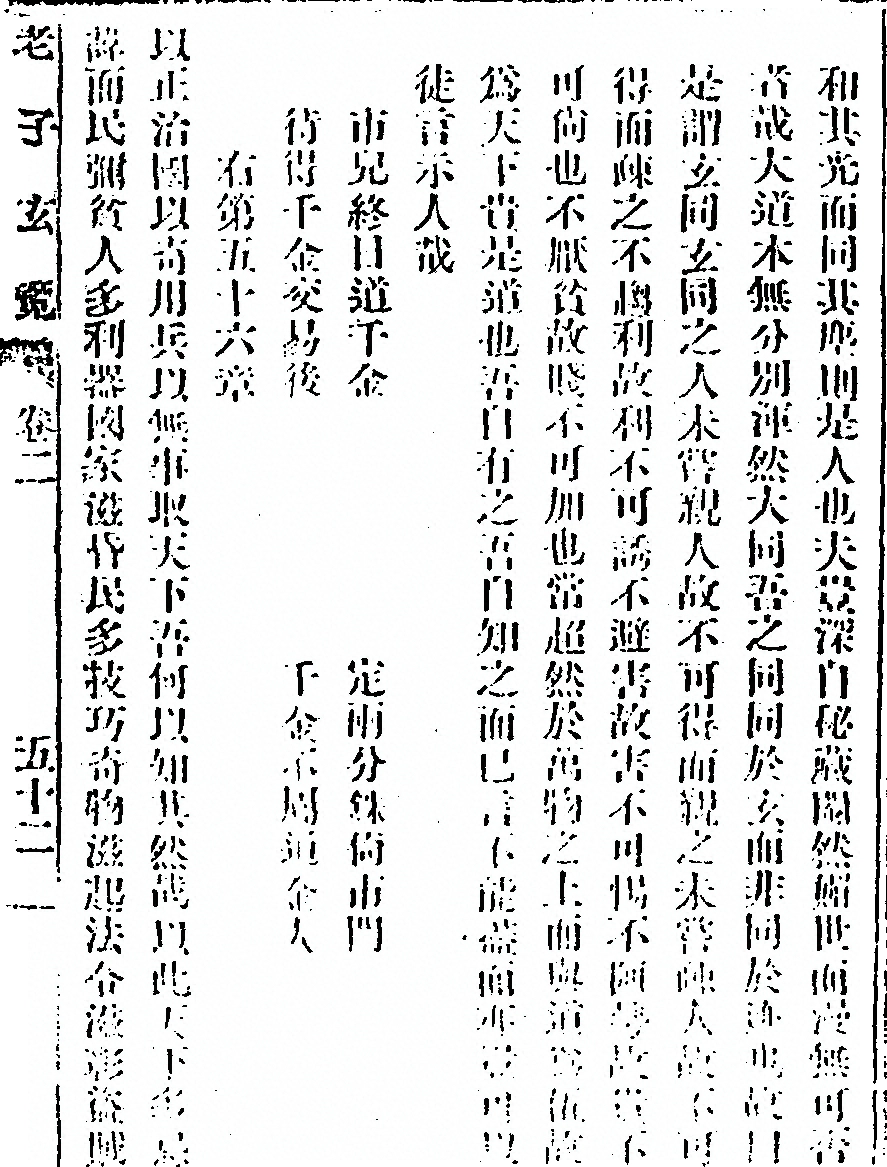 和其光而同其塵則是人也夫豈深自秘藏闇然媚世而漫無可否
者哉大道本無分別渾然大同吾之同同於玄而非同於迹也故曰
是謂玄同玄同之人未嘗親人故不可得而親之未嘗疎人故不可
得而疎之不趨利故利不可誘不避害故害不可惕不阿勢故貴不
可尚也不厭貧故賤不可加也常超然於萬物之上而與道為伍故
為天下貴是道也吾自有之吾自知之而已言不能盡而亦豈可以
徒言示人哉
市兒終日道千金 定兩分銖倚市門
待得千金交易後 千金不屑道金人
右第五十六章
以正治國以奇用兵以無事取天下吾何以知其然哉以此天下多忌
諱而民彌貧人多利器國家滋昏民多技巧奇物滋起法令滋彰盜賊
老子玄覽 卷二 五十二